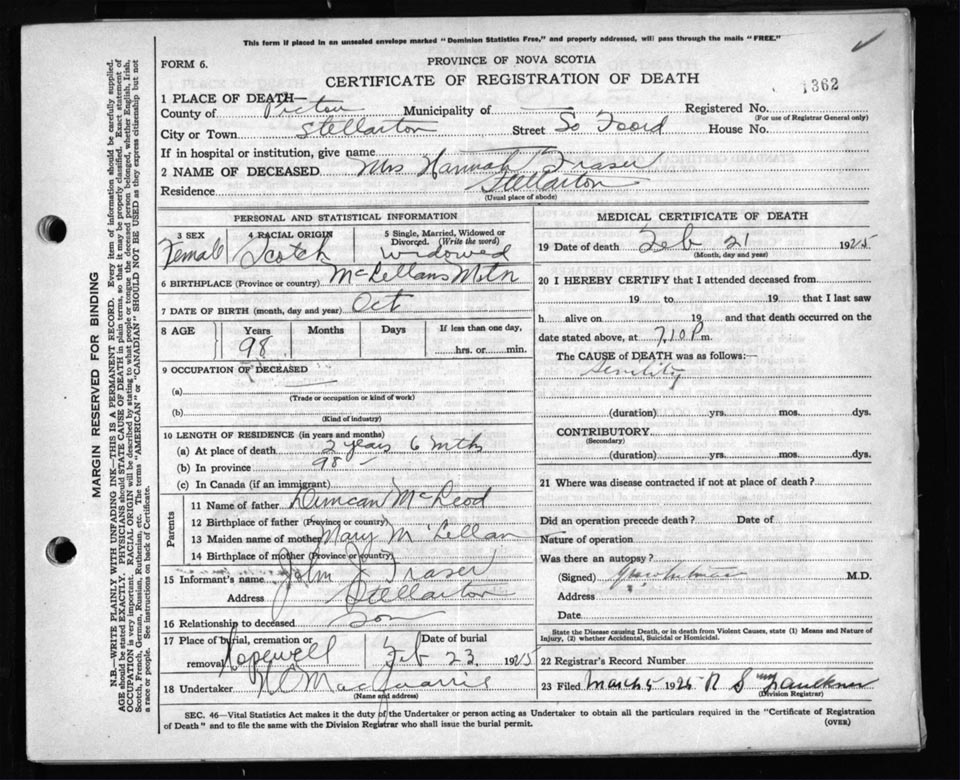 This form if placed in an unsealed envelope marked "Dominion Statistics Free," and properly addressed, will pass through the mails "FREE."
FORM 6.
PROVINCE OF NOVA SCOTIA
CERTIFICATE OF REGISTRATION OF DEATH
1362
1 PLACE OF DEATH—
County of Pictou Municipality of — Registered No.
(For use of Registrar General only)
City or Town Stellarton Street So Foord House No.
If in hospital or institution, give name
2 NAME OF DECEASED Mrs Hannah Fraser
Residence Stellarton
(Usual place of abode)
PERSONAL AND STATISTICAL INFORMATION
3 SEX 4 RACIAL ORIGIN 5 Single, Married, Widowed or Divorced. (Write the word)
Female Scotch Widowed
6 BIRTHPLACE (Province or country) McLellans Mtn
7 DATE OF BIRTH (month, day and year) Oct
8 AGE Years Months Days If less than one day,
98 hrs. or min.
9 OCCUPATION OF DECEASED
(a) —
(Trade or occupation or kind of work)
(b)
(Kind of industry)
10 LENGTH OF RESIDENCE (in years and months)
(a) At place of death 2 years 6 mths
(b) In province 98 –
(c) In Canada (if an immigrant)
Parents
11 Name of father Duncan McLeod
12 Birthplace of father (Province or country)
13 Maiden name of mother Mary McLellan
14 Birthplace of mother (Province or country)
15 Informant's name John J Fraser
Address Stellarton
16 Relationship to deceased Son
17 Place of burial, cremation or removal Hopewell Date of burial Feb 23 1925
18 Undertaker
(Name and address)
MEDICAL CERTIFICATE OF DEATH
19 Date of death Feb 21 1925
(Month, day and year)
20 I HEREBY CERTIFY that I attended deceased from
19 to 19 that I last saw
h alive on 19 and that death occurred on the
date stated above, at 7.10 P m.
The CAUSE of DEATH was as follows:—
Senility
(duration) yrs. mos. dys.
CONTRIBUTORY
(Secondary)
(duration) yrs. mos. dys.
21 Where was disease contracted if not at place of death?
Did an operation precede death? Date of
Nature of operation
Was there an autopsy?
(Signed) M.D.
Address
Date
State the Disease causing Death, or in death from Violent Causes, state (1) Means and Nature of
Injury, (2) whether Accidental, Suicidal or Homicidal.
22 Registrar's Record Number
23 Filed March 5 1925 R S Faulkner
(Division Registrar)
SEC. 46—Vital Statistics Act makes it the duty of the Undertaker or person acting as Undertaker to obtain all the particulars required in the "Certificate of Registration
of Death" and to file the same with the Division Registrar who shall issue the burial permit.
(OVER)
MARGIN RESERVED FOR BINDING
N.B.—WRITE PLAINLY WITH UNFADING INK—THIS IS A PERMANENT RECORD. Every item of information should be carefully supplied.
AGE should be stated EXACTLY. PHYSICIANS should STATE CAUSE OF DEATH in plain terms, so that it may be properly classified. Exact statement of
OCCUPATION is very important. RACIAL ORIGIN will be described by stating to what people or tongue the deceased person belonged, whether English, Irish,
Scotch, French, German, Russian, Ruthenian, etc. The terms "AMERICAN" or "CANADIAN" SHOULD NOT BE USED as they express citizenship but not
a race or people. See instructions on back of Certificate.